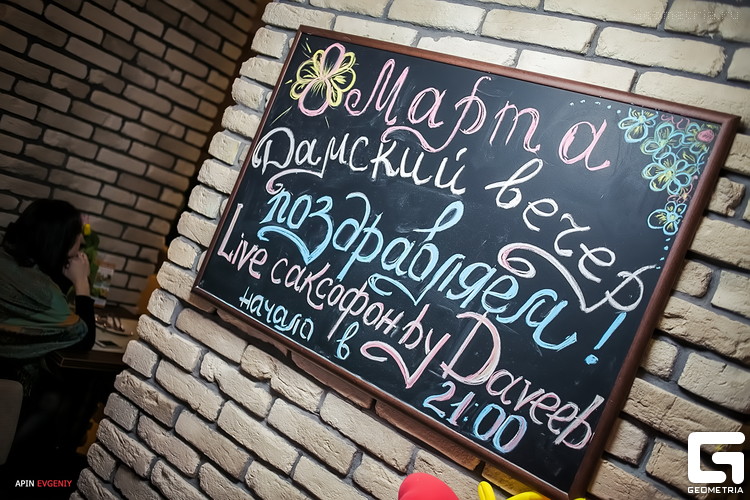 8 Марта
Дамский вечер
поздравляем!
Live саксофон by Daveeb
начало в 21:00
APIN EVGENIY
GEOMETRIA